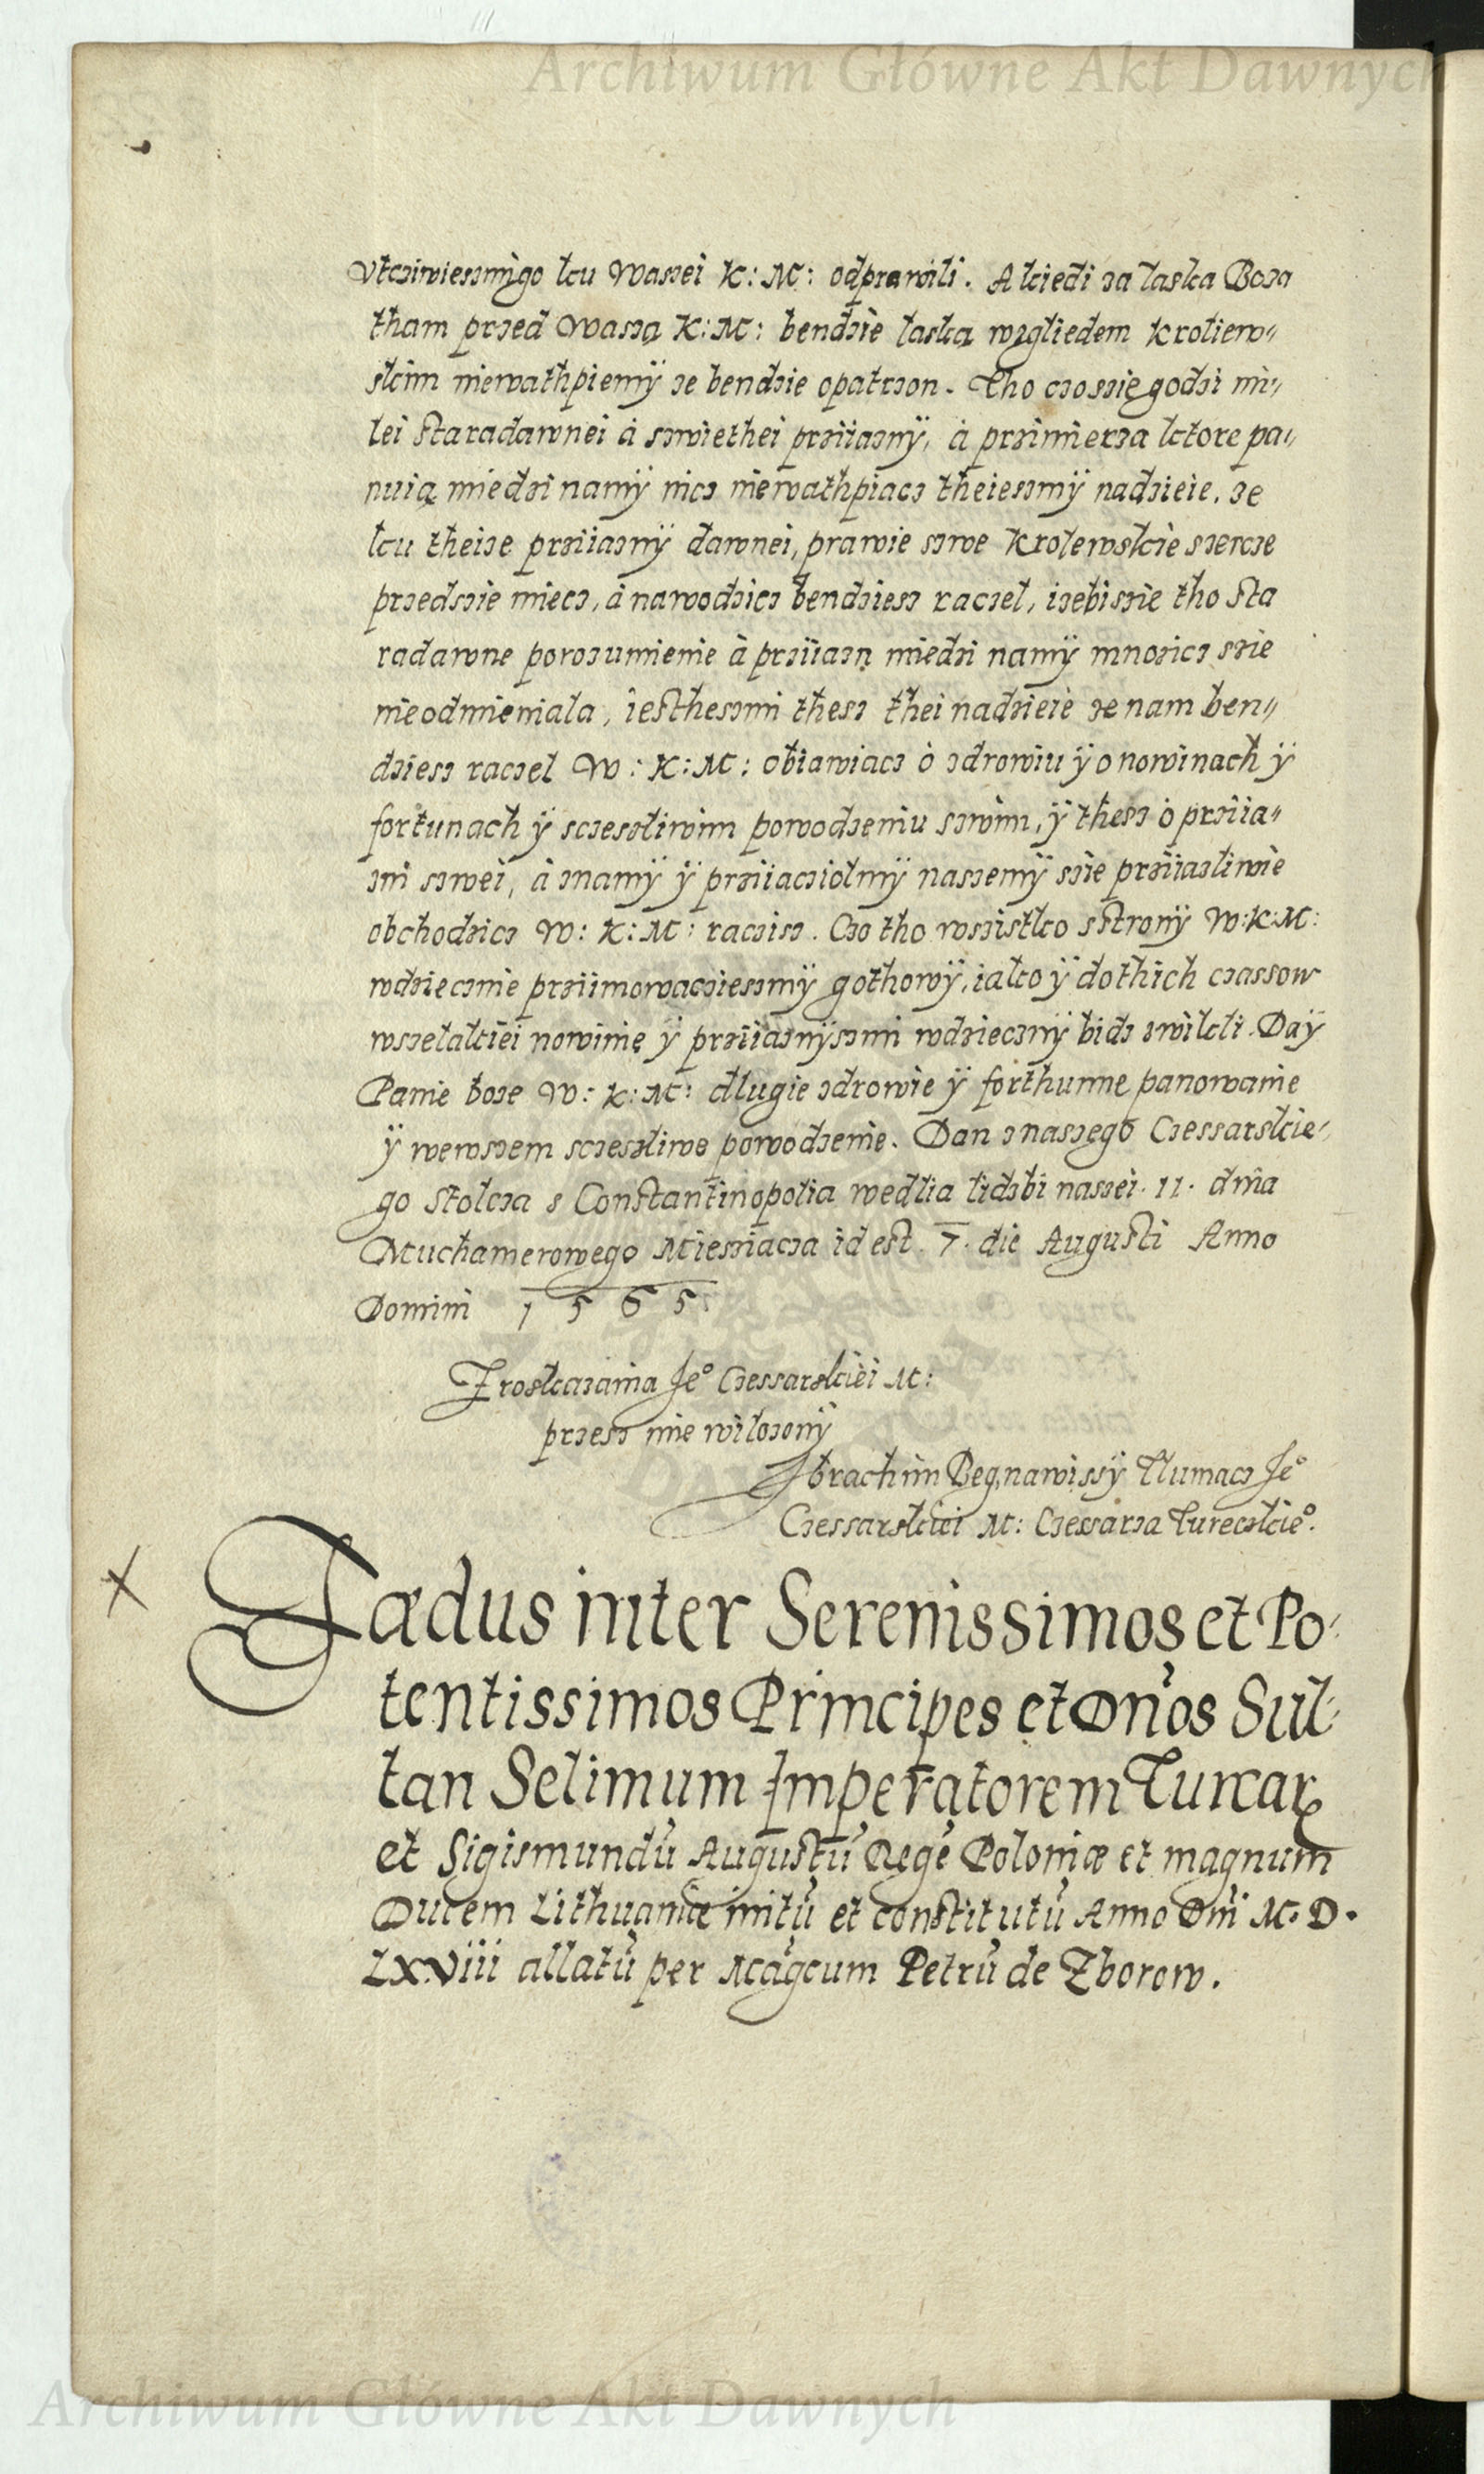 Archiwum Główne Akt Dawnych
Vtcziwiesznijgo ku Waszei K: M: odprawili. A kiedi za laska Boza
tham przed Waszą K: M: bendzie laską wzgliedem kroliew„
skim niewathpiemÿ ze bendzie opatrzon. Tho czo szię godzi mi„
lei staradawnei á szwiethei prziiaznÿ, á przimierza ktore pa„
nuią miedzi namÿ nicz niewathpiacz theieszmÿ nadzieie, ze
ku theize prziiaznÿ dawnei, prawie szwe krolewskie szercze
przedszie miecz, á nawodzicz bendziesz raczel, izebi szie tho sta
radawne porozumienie à prziiazn miedzi namÿ mnozicz szie
nieodmieniala, iestheszmi thesz thei nadzieie ze nam ben„
dziesz raczel W: K: M: obiawiacz o zdrowiu ÿ o nowinach ÿ
fortunach ÿ sczeszliwim powodzeniu szwim, ÿ thesz o prziia„
zni szwei, á znamÿ ÿ prziiacziolmÿ naszemÿ szie prziiazliwie
obchodzicz W: K: M: raczisz. Czo tho wszistko sstronÿ W: K: M:
wdziecznie prziimowacziesmÿ gothowÿ, iako ÿ dothich czassow
wszelakiei nowinię ÿ prziiaznÿszmi wdziecznÿ bidz zwikli. Daÿ
Panie boze W: K: M: dlugie zdrowie ÿ forthunne panowanie
ÿ wewszem sczeszliwe powodzenie. Dan z naszego Czessarskie„
go stolcza s Constantinopolia wedlia lidzbi naszei 11. dnia
Muchamerowego Miesziacza id est 7. die Augusti Anno
Domini 1565.
Z roskazania Je° Czessarskiei M:
przesz mie wilozonÿ
Ibrachim Beg, nawissÿ Tlumacz Je°
Czessarskiei M: Czessarza Tureczkie°.
X
Fædus inter Serenissimos et Po„
tentissimos Principes et Dn̄os Sul„
tan Selimum Imperatorem Turcarꝝ
et Sigismundū Augustū Regē Poloniæ et magnum
Ducem Lithuaniæ initū et constitutū Anno Dn̄i M. D.
LXViii allatū per Mag̃cum Petrū de Zborow.
Archiwum Główne Akt Dawnych